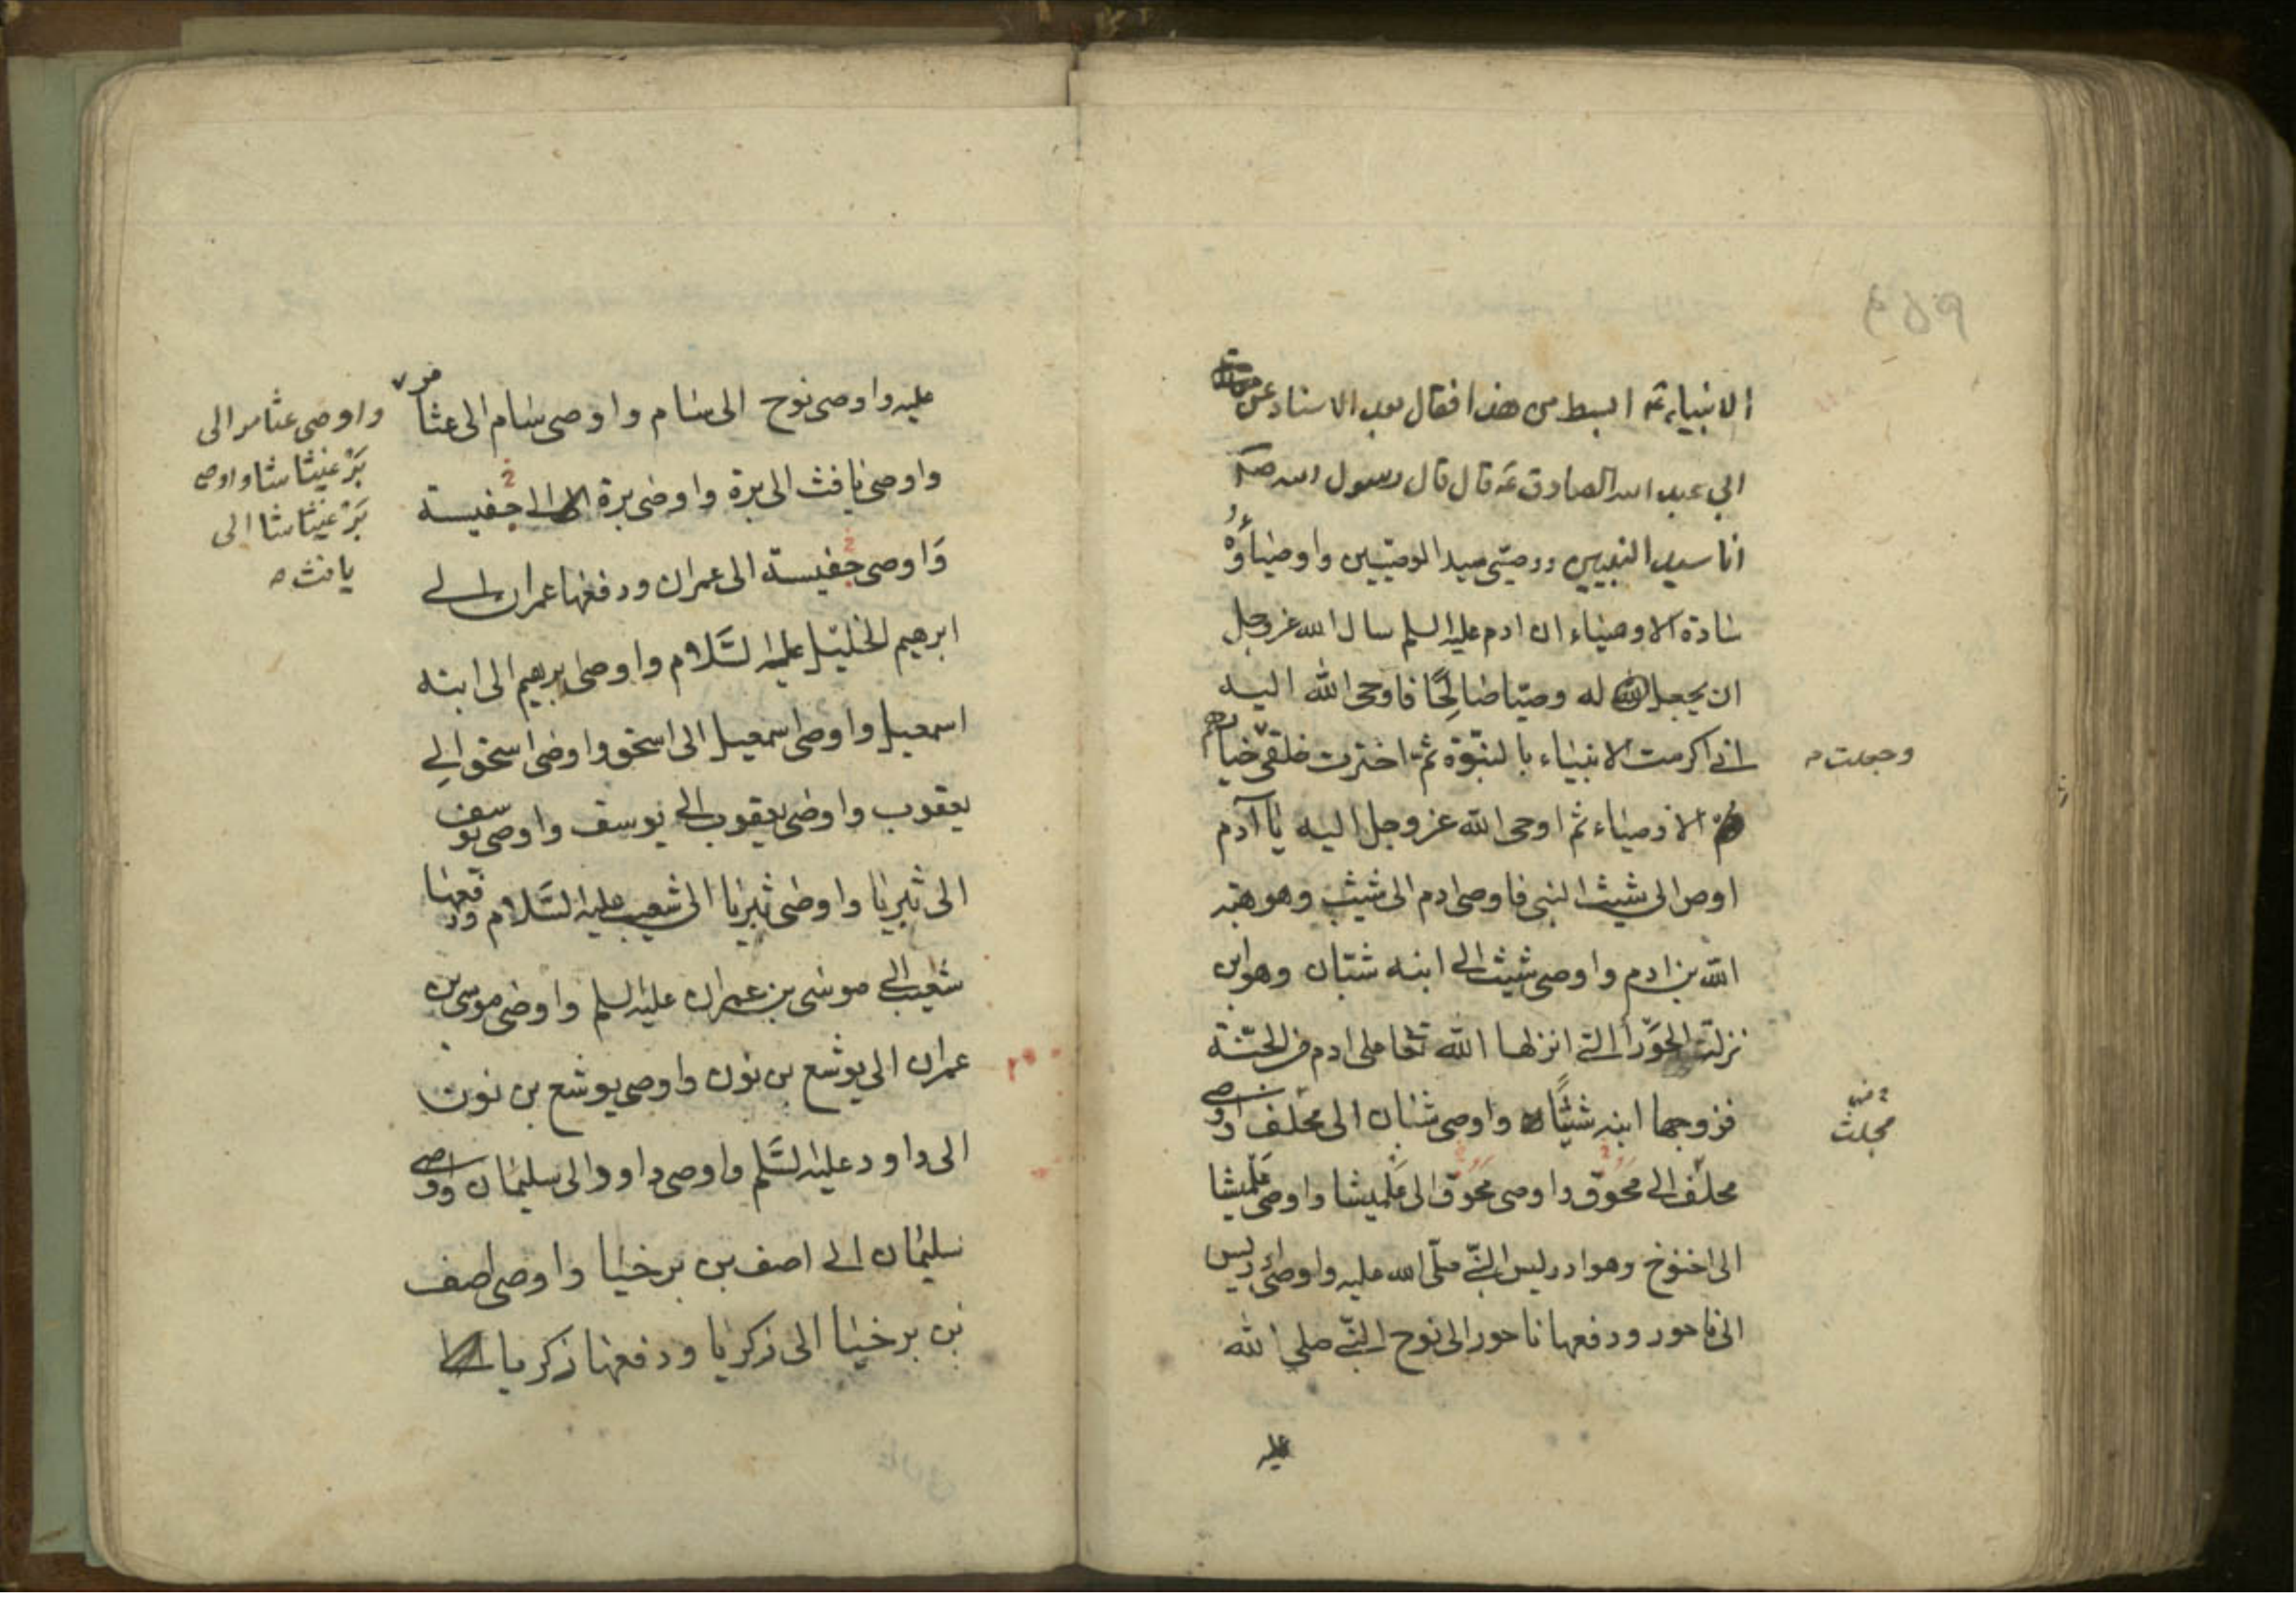 الانبياء ثم ابسط من هذا فقال بعد الاسناد عن
ابي عبد الله الصادق ع قال قال رسول الله صلى
انا سيد النبيين ووصيي سيد الوصيين واوصياؤه
سادة الاوصياء ان ادم عليه السلم سال الله عز وجل
ان يجعل له وصيا صالحا فاوحى الله اليه
اني اكرمت الانبياء بالنبوة ثم اخترت خلقي خيارهم
وجعلت
الاوصياء ثم اوحى الله عز وجل اليه يا آدم
اوص الى شيث النبي فاوصى ادم الى شيث وهو هبة
الله بن ادم واوصى شيث الى ابنه شبان وهو ابن
نزلة الحوراء التي انزلها الله تعا على ادم من الجنة
فزوجها ابنه شيثا واوصى شبان الى محلف واوصى
محلث
محلف الى محوق واوصى محوق الى علميشا واوصى علميشا
الى اخنوخ وهو ادريس النبي صلى الله عليه واوصى ادريس
الى ناحور ودفعها ناحور الى نوح النبي صلى الله
عليه
عليه واوصى نوح الى سام واوصى سام الى عثامر
واوصى عثامر الى
برعيثاشا واوصى
برعيثاشا الى
يافث
واوصى يافث الى برة واوصى برة الى جفيسة
واوصى جفيسة الى عمران ودفعها عمران الى
ابرهيم الخليل عليه السلام واوصى ابرهيم الى ابنه
اسمعيل واوصى اسمعيل الى اسحق واوصى اسحق الى
يعقوب واوصى يعقوب الى يوسف واوصى يوسف
الى ثبريا واوصى ثبريا الى شعيب عليه السلام ودفعها
شعيب الى موسى بن عمران عليه السلم واوصى موسى بن
عمران الى يوشع بن نون واوصى يوشع بن نون
الى داود عليه السلم واوصى داود الى سليمان واوصى
سليمان الى اصف بن برخيا واوصى اصف
بن برخيا الى زكريا ودفعها زكريا